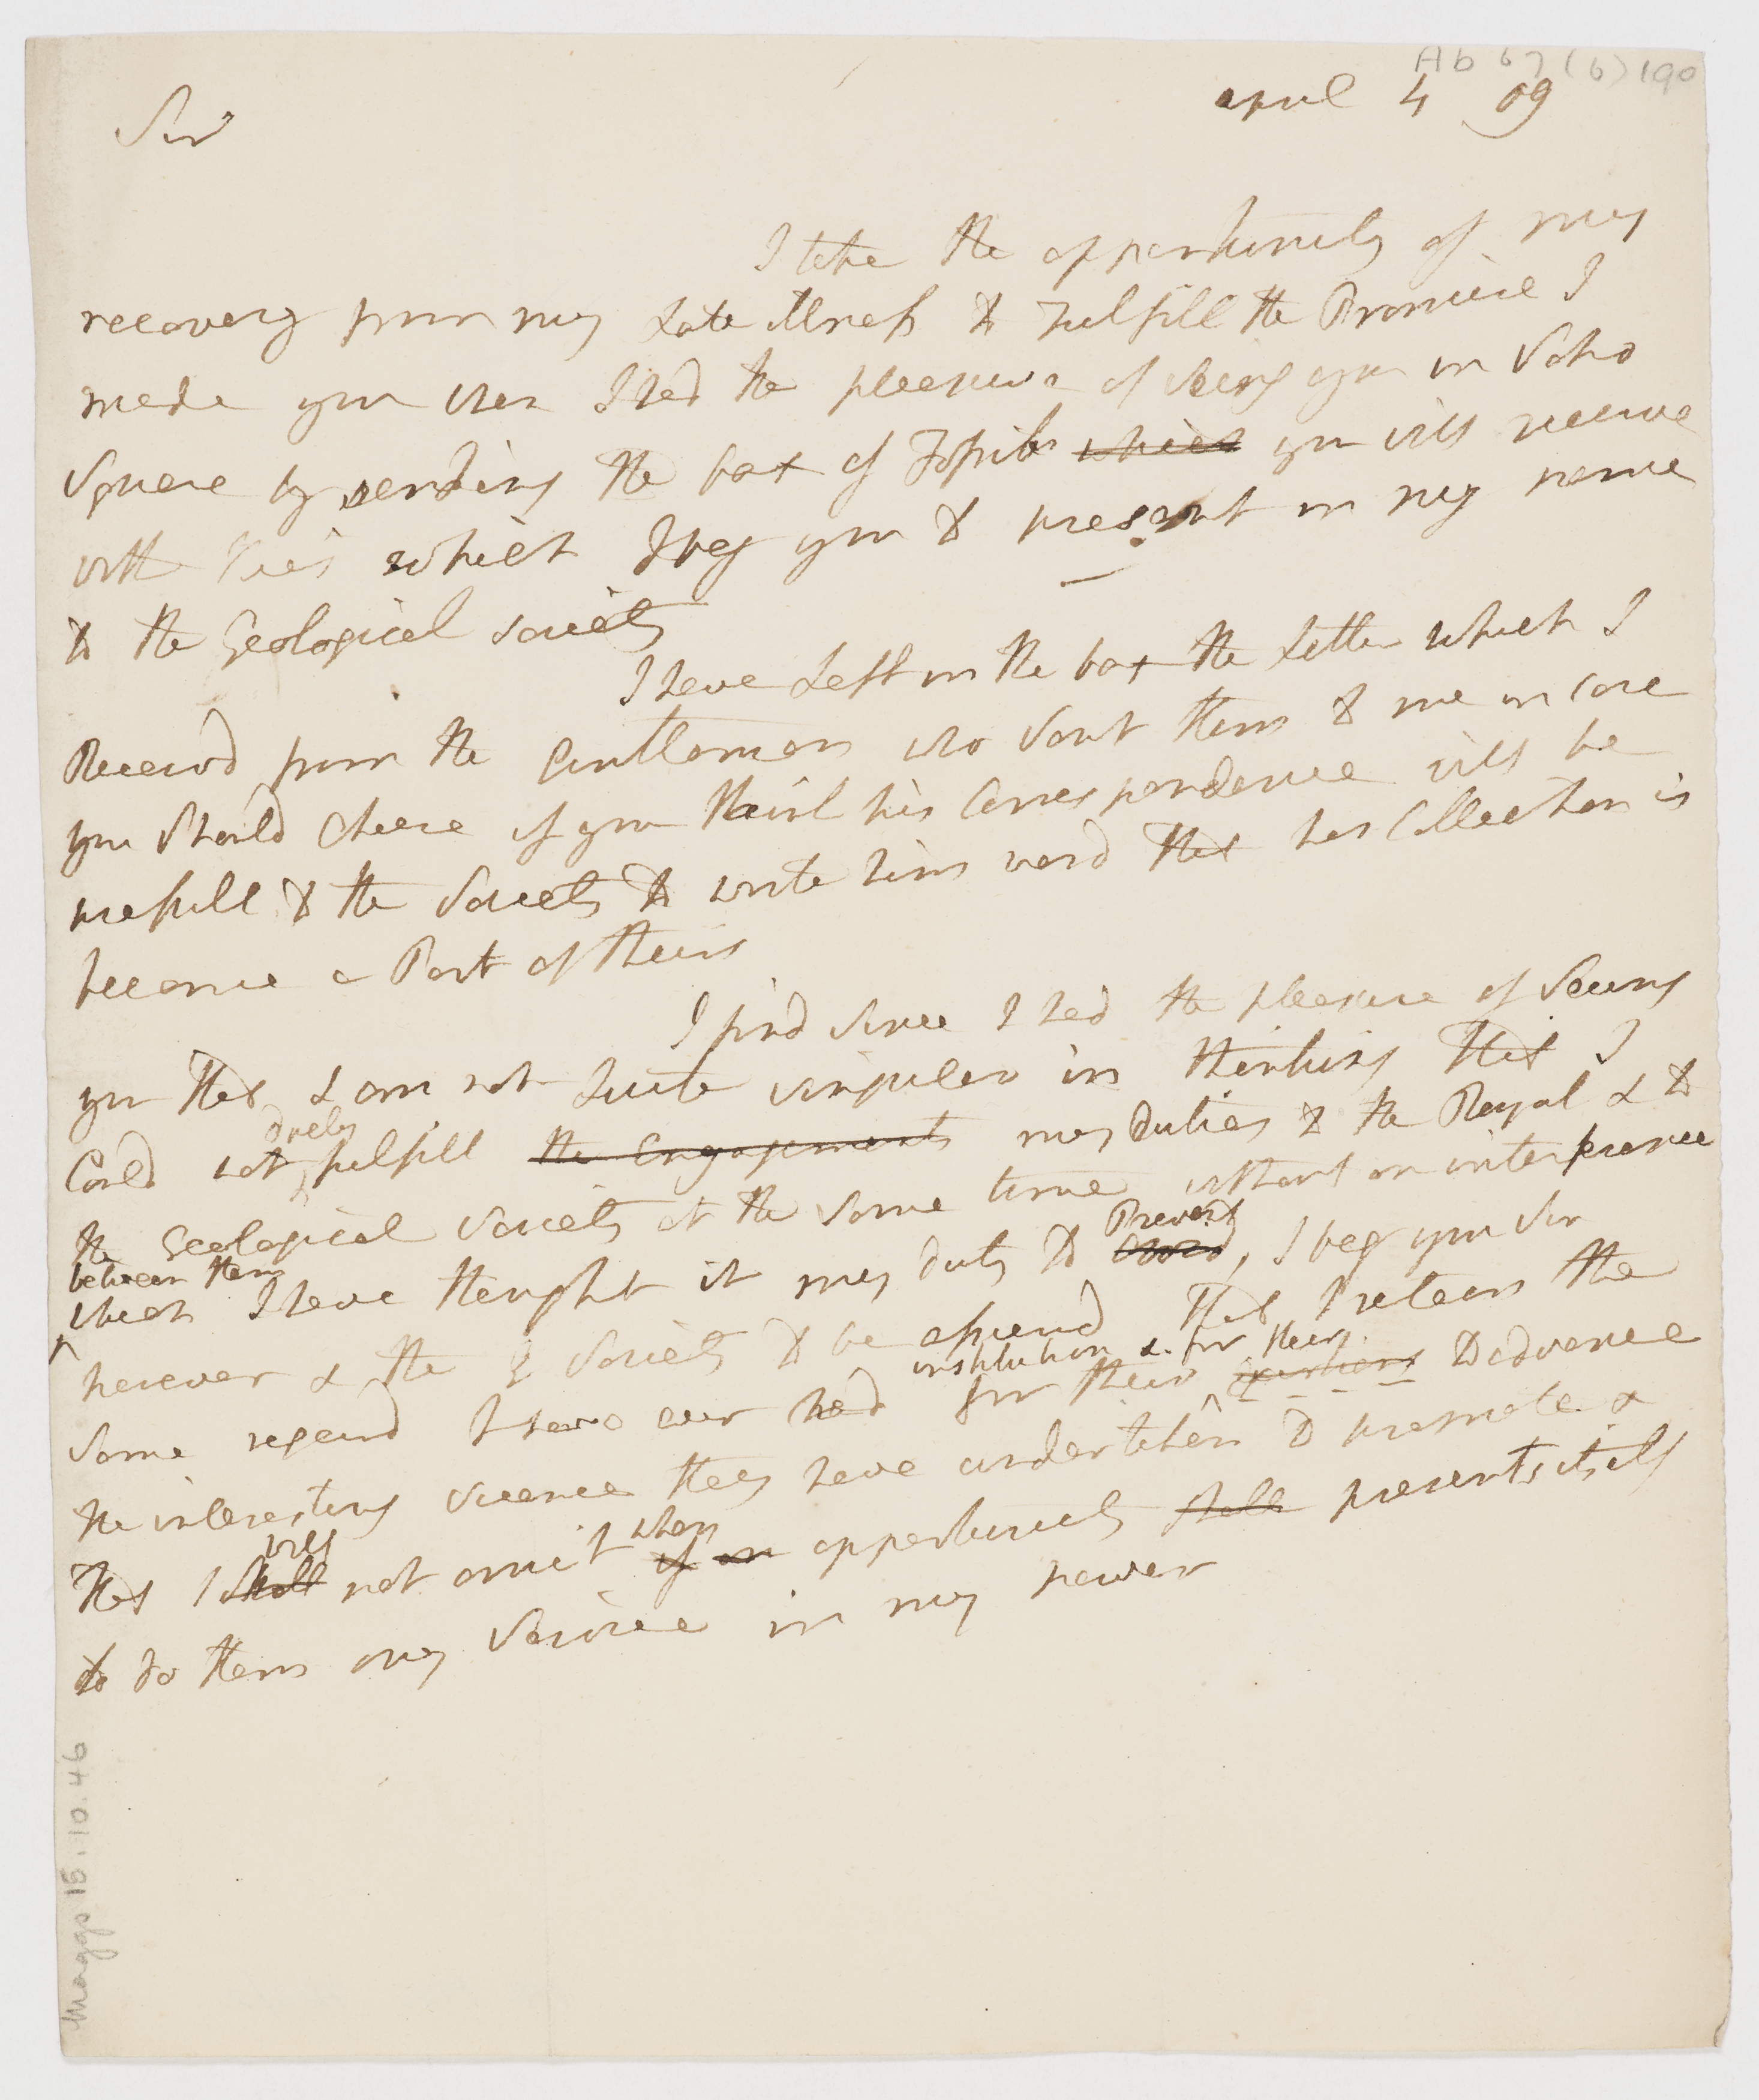 Ab 67 (6) 190
april 4 09
Sir
I take the opportunity of my
recovery from my Late illness to Fulfill the Promise I
made you when I had the pleasure of Seeing you in Soho
Square by sending the box of Fossils which you will receive
with this which I beg you to present in my name
to the Geological society
I have Left in the box the Letter which I
Receivd from the Gentleman who Sent them to me in Case
you Should Chuse if you think his Correspondence will be
usefull to the Society to write him word that his Collection is
become a Part of theirs
I find since I had the pleasure of Seeing
you that I am not Quite singular in thinking that I
duely
Could not fulfill the Engagements my Duties to the Royal & to
the Geological Society at the Same time without an interference
between them Prevent
which I have thought it my duty to avoid, I beg you Sir
however & the G Society to be assured that I retain the
institution & for their
Same regard I have ever had for their exertions to advance
the interesting Science they have undertaken to promote &
will when
that I shall not omit if an opportunity shall presents itself
to do them any Service in my power
Maggs 15.10.46